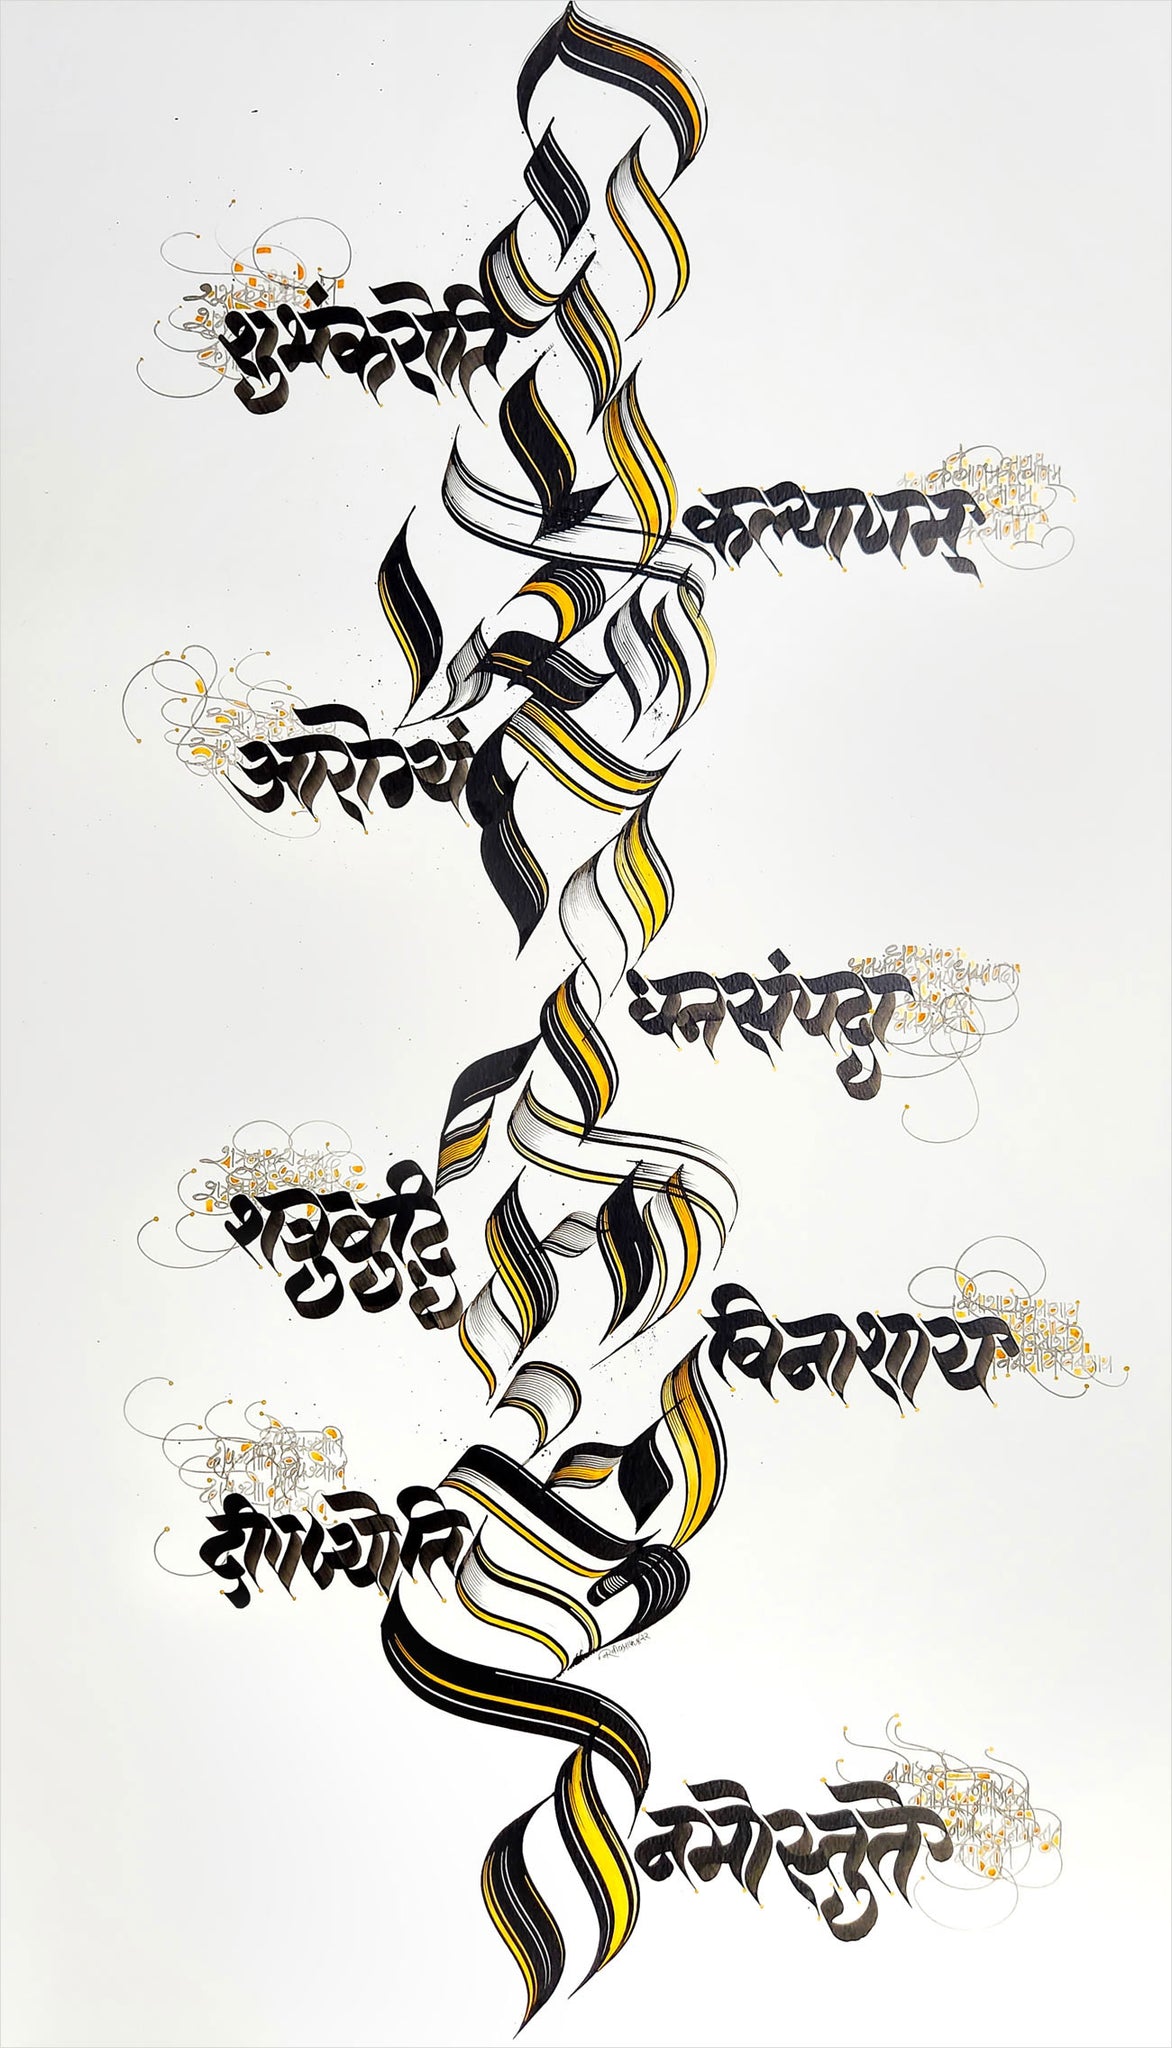 शुभंकरोति
कल्याणम्
आरोग्यं
धनसंपदा
शत्रुबुद्धि
विनाशाय
दीपज्योति
नमोस्तुते